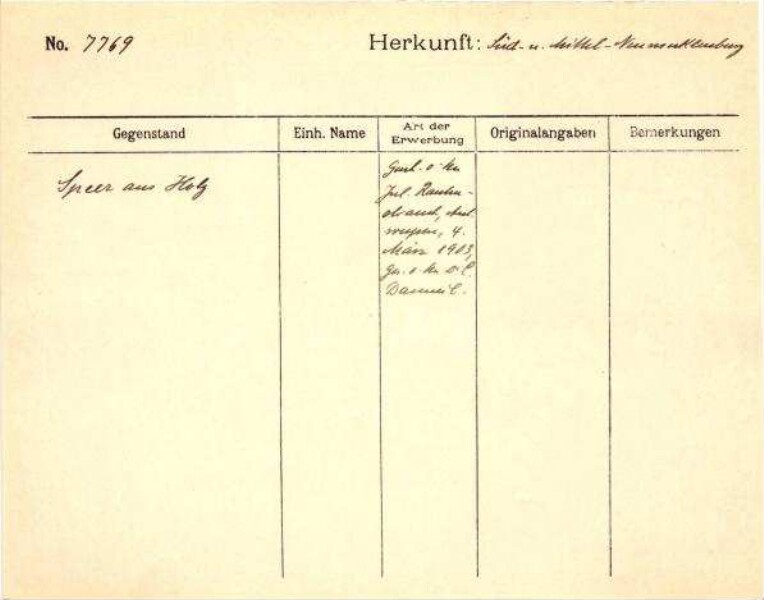 No. 7769 Herkunft: Süd- u. Mittel-Neumecklenburg
Gegenstand Einh. Name Art der Erwerbung Originalangaben Bemerkungen
Speer aus Holz
Jul. Rauten-
4.
März 1903,
Danneil.